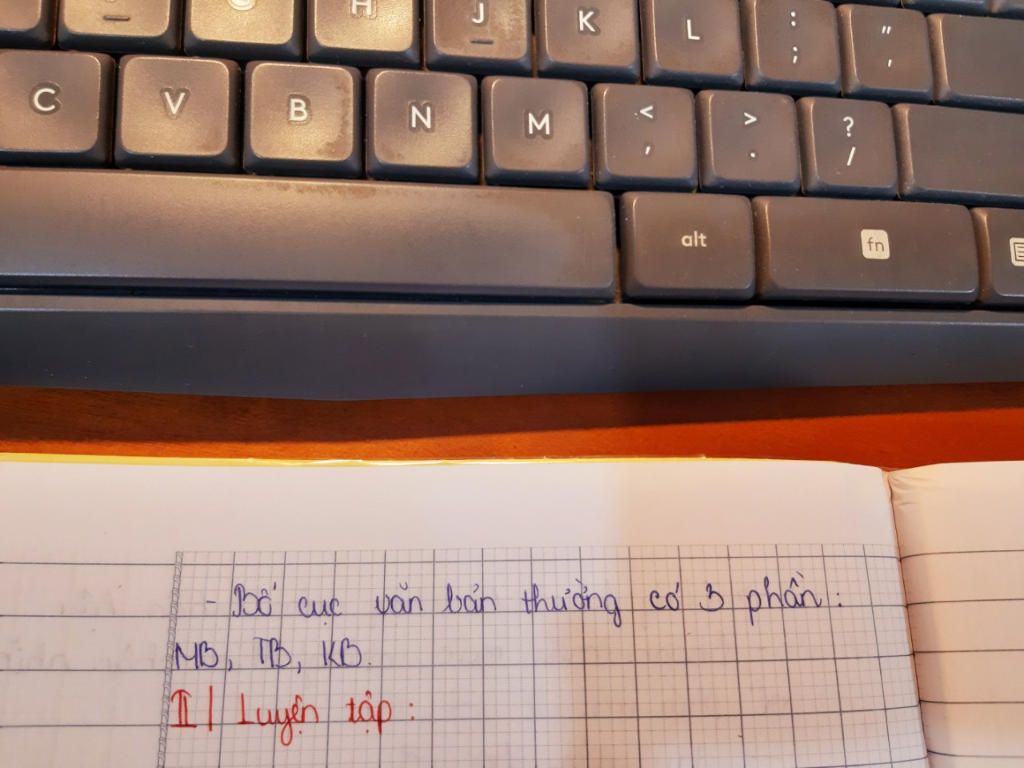 H J K L : ;
" '
C V B N M < , > . ? /
alt fn
- Bố cục văn bản thường có 3 phần:
MB, TB, KB.
II/ Luyện tập: